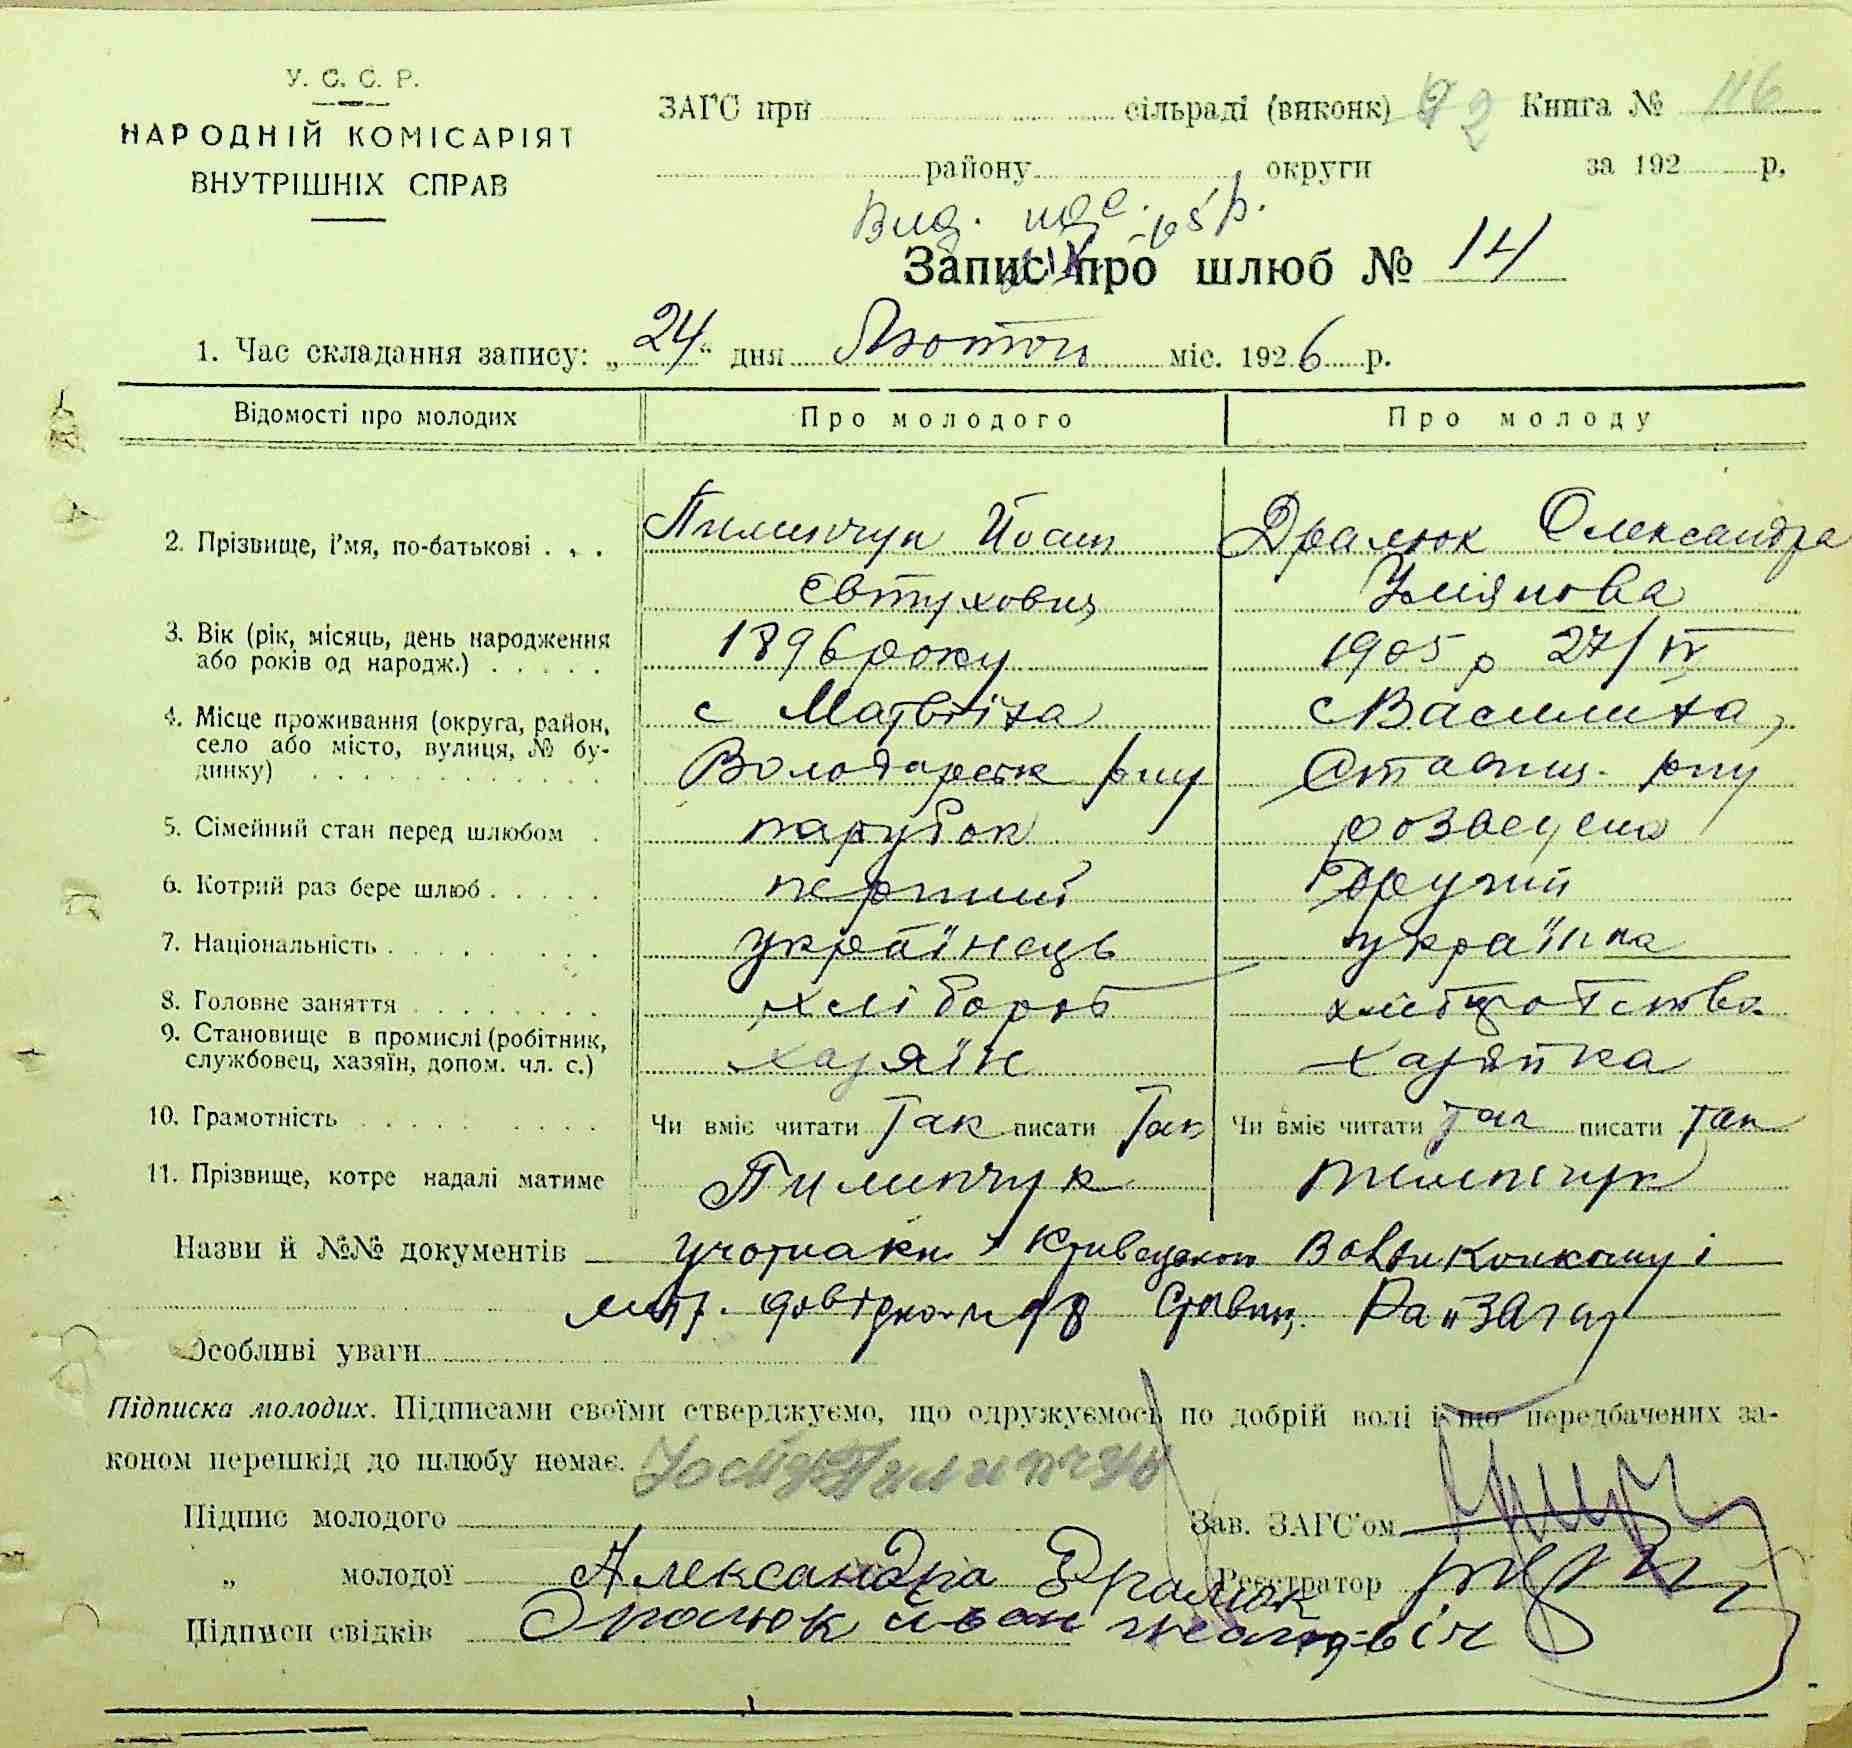 У. С. С. Р.
НАРОДНІЙ КОМІСАРІЯТ
ВНУТРІШНІХ СПРАВ
ЗАГС при сільраді (виконк) 92 Книга № 116
району округи за 192 р.
Вид.
Запис про шлюб № 14
1. Час складання запису: „24“ дня Лютого міс. 1926 р.
Відомості про молодих Про молодого Про молоду
2. Прізвище, і'мя, по-батькові . . . Пилипчук Йосип Дралюк Олександра
Євтухович Улянова
3. Вік (рік, місяць, день народження 1896 року 1905 р 27/IV
або років од народж.) . . . . .
4. Місце проживання (округа, район, с Матвіїха с Василиха,
село або місто, вулиця, № бу- Володарськ р-ну Ставищ. р-ну
динку) . . . . . . . . . . .
5. Сімейний стан перед шлюбом . парубок розведена
6. Котрий раз бере шлюб . . . . . перший Другий
7. Національність . . . . . . . . українець українка
8. Головне заняття . . . . . . . . хлібороб
9. Становище в промислі (робітник, хазяїн хазяйка
службовец, хазяїн, допом. чл. с.)
10. Грамотність . . . . . . . . . Чи вміє читати Так писати Так Чи вміє читати Так писати Так
11. Прізвище, котре надалі матиме Пилипчук Пилипчук
Назви й №№ документів і
98 Ставищ. РайЗагсу
Особливі уваги
Підписка молодих. Підписами своїми стверджуємо, що одружуємось по добрій волі і що передбачених за-
коном перешкід до шлюбу немає.
Пилипчук
Підпис молодого Зав. ЗАГС'ом
„ молодої Александра Дралюк Реєстратор
Підписи свідків Дралюк